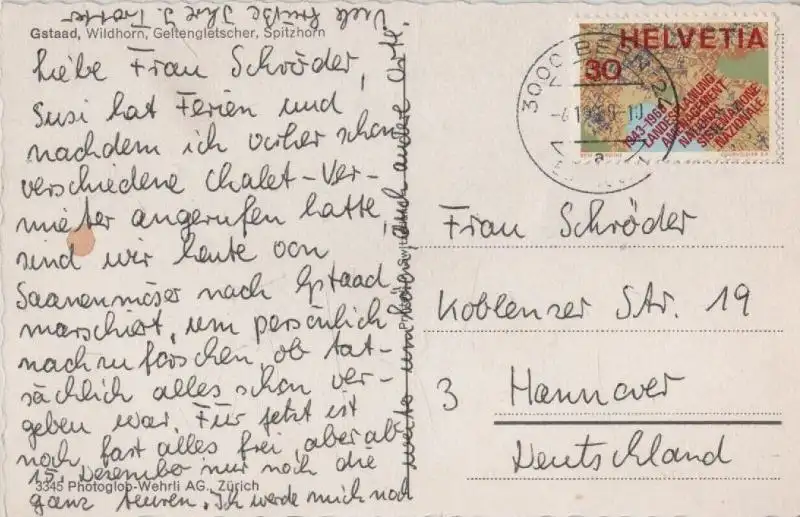 Gstaad, Wildhorn, Geltengletscher, Spitzhorn
Liebe Frau Schröder,
Susi hat Ferien und
nachdem ich vorher schon
verschiedene Chalet-Ver-
mieter angerufen hatte,
sind wir heute von
Saanenmöser nach Gstaad
marschiert, um persönlich
nachzuforschen, ob tat-
sächlich alles schon ver-
geben war. Für jetzt ist
noch fast alles frei, aber ab
15. Dezember nur noch die
ganz teuren. Ich werde mich noch
weiter umhören, auch andere Orte.
Viele Grüße Ihre J.
3345 Photoglob-Wehrli AG., Zürich
HELVETIA
30
1943-1968
LANDESPLANUNG
AMÉNAGEMENT
NATIONAL
SISTEMAZIONE
NAZIONALE
3000 BERN
a
Frau Schröder
Koblenzer Str. 19
3 Hannover
Deutschland